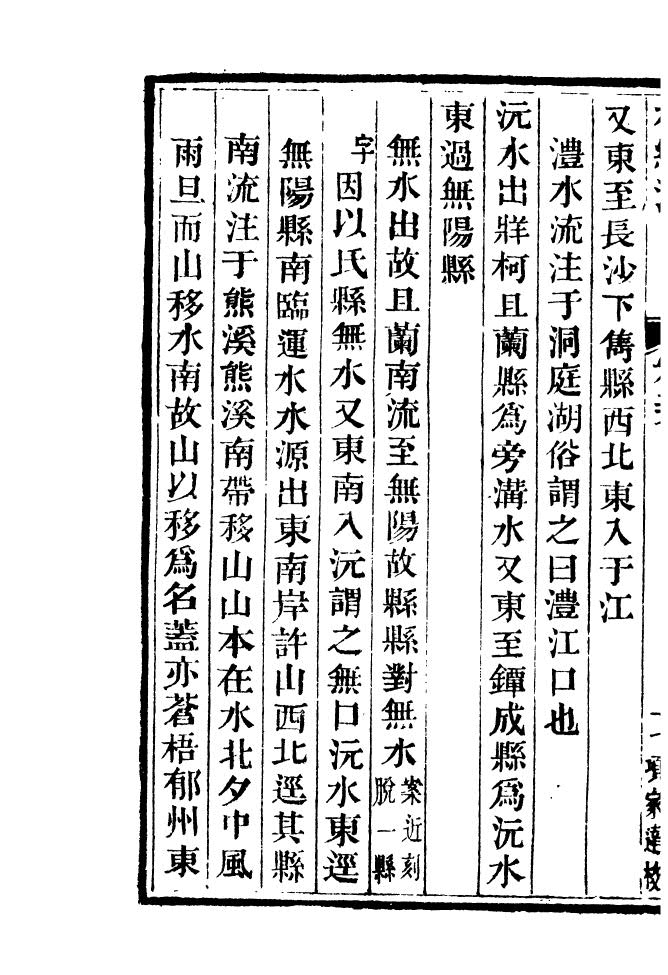 又東至長沙下雋縣西北東入于江
澧水流注于洞庭湖俗謂之曰澧江口也
沅水出牂柯且蘭縣爲旁溝水又東至鐔成縣爲沅水
東過無陽縣
無水出故且蘭南流至無陽故縣縣對無水案近刻脫一縣
字因以氏縣無水又東南入沅謂之無口沅水東逕
無陽縣南臨運水水源出東南岸許山西北逕其縣
南流注于熊溪熊溪南帶移山山本在水北夕中風
雨旦而山移水南故山以移爲名蓋亦蒼梧郁州東